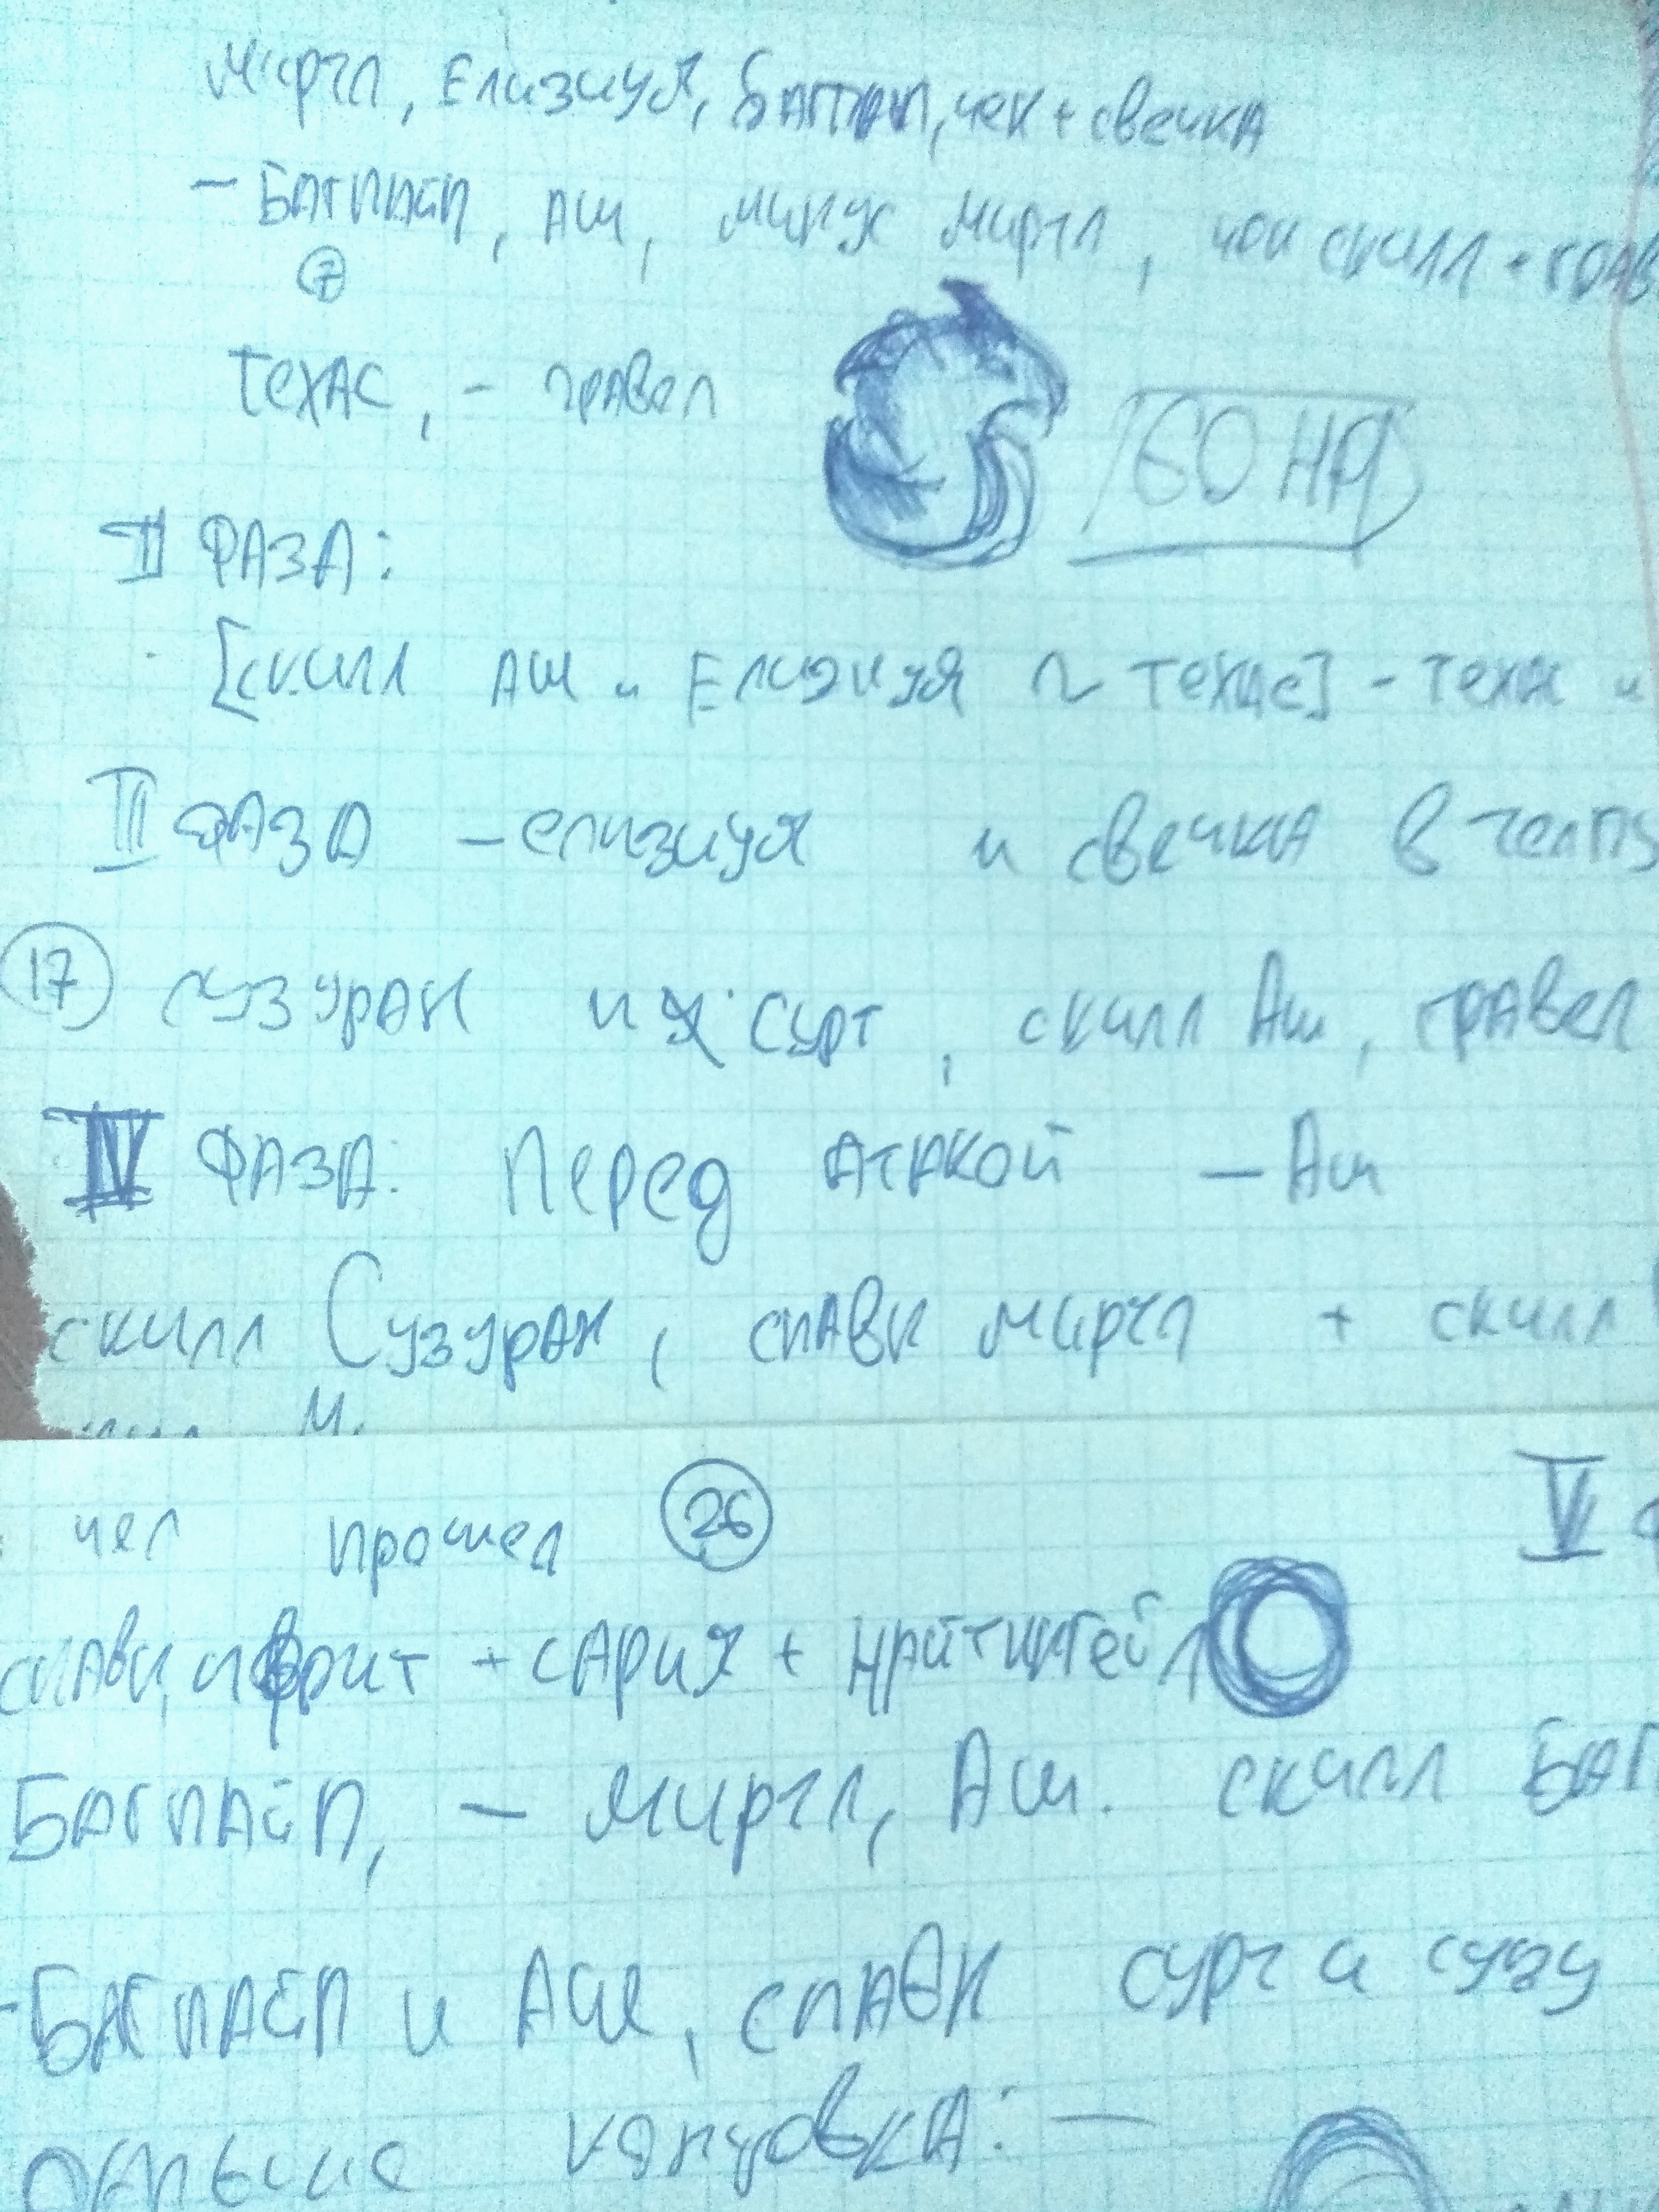 Миртл, Елизиум, Багпайп, чек + свечка
- Багпайп, Аш, минус Миртл, чек скилл + грав
7
Техас, - гравел
60 HP
II ФАЗА:
[скилл Аш и Елизиум ~ Техас] - Техас и
III ФАЗА - елизиум и свечка в
17 Сузуран и Сурт, скилл Аш, гравел
IV ФАЗА: Перед атакой - Аш
скилл Сузуран, спавн миртл + скилл
чел прошел 26 V
спавн ифрит + сария + найтингейл
Багпайп, - миртл, Аш. скилл Баг
- Багпайп и Аш, спавн сурт и сузу
концовка: -